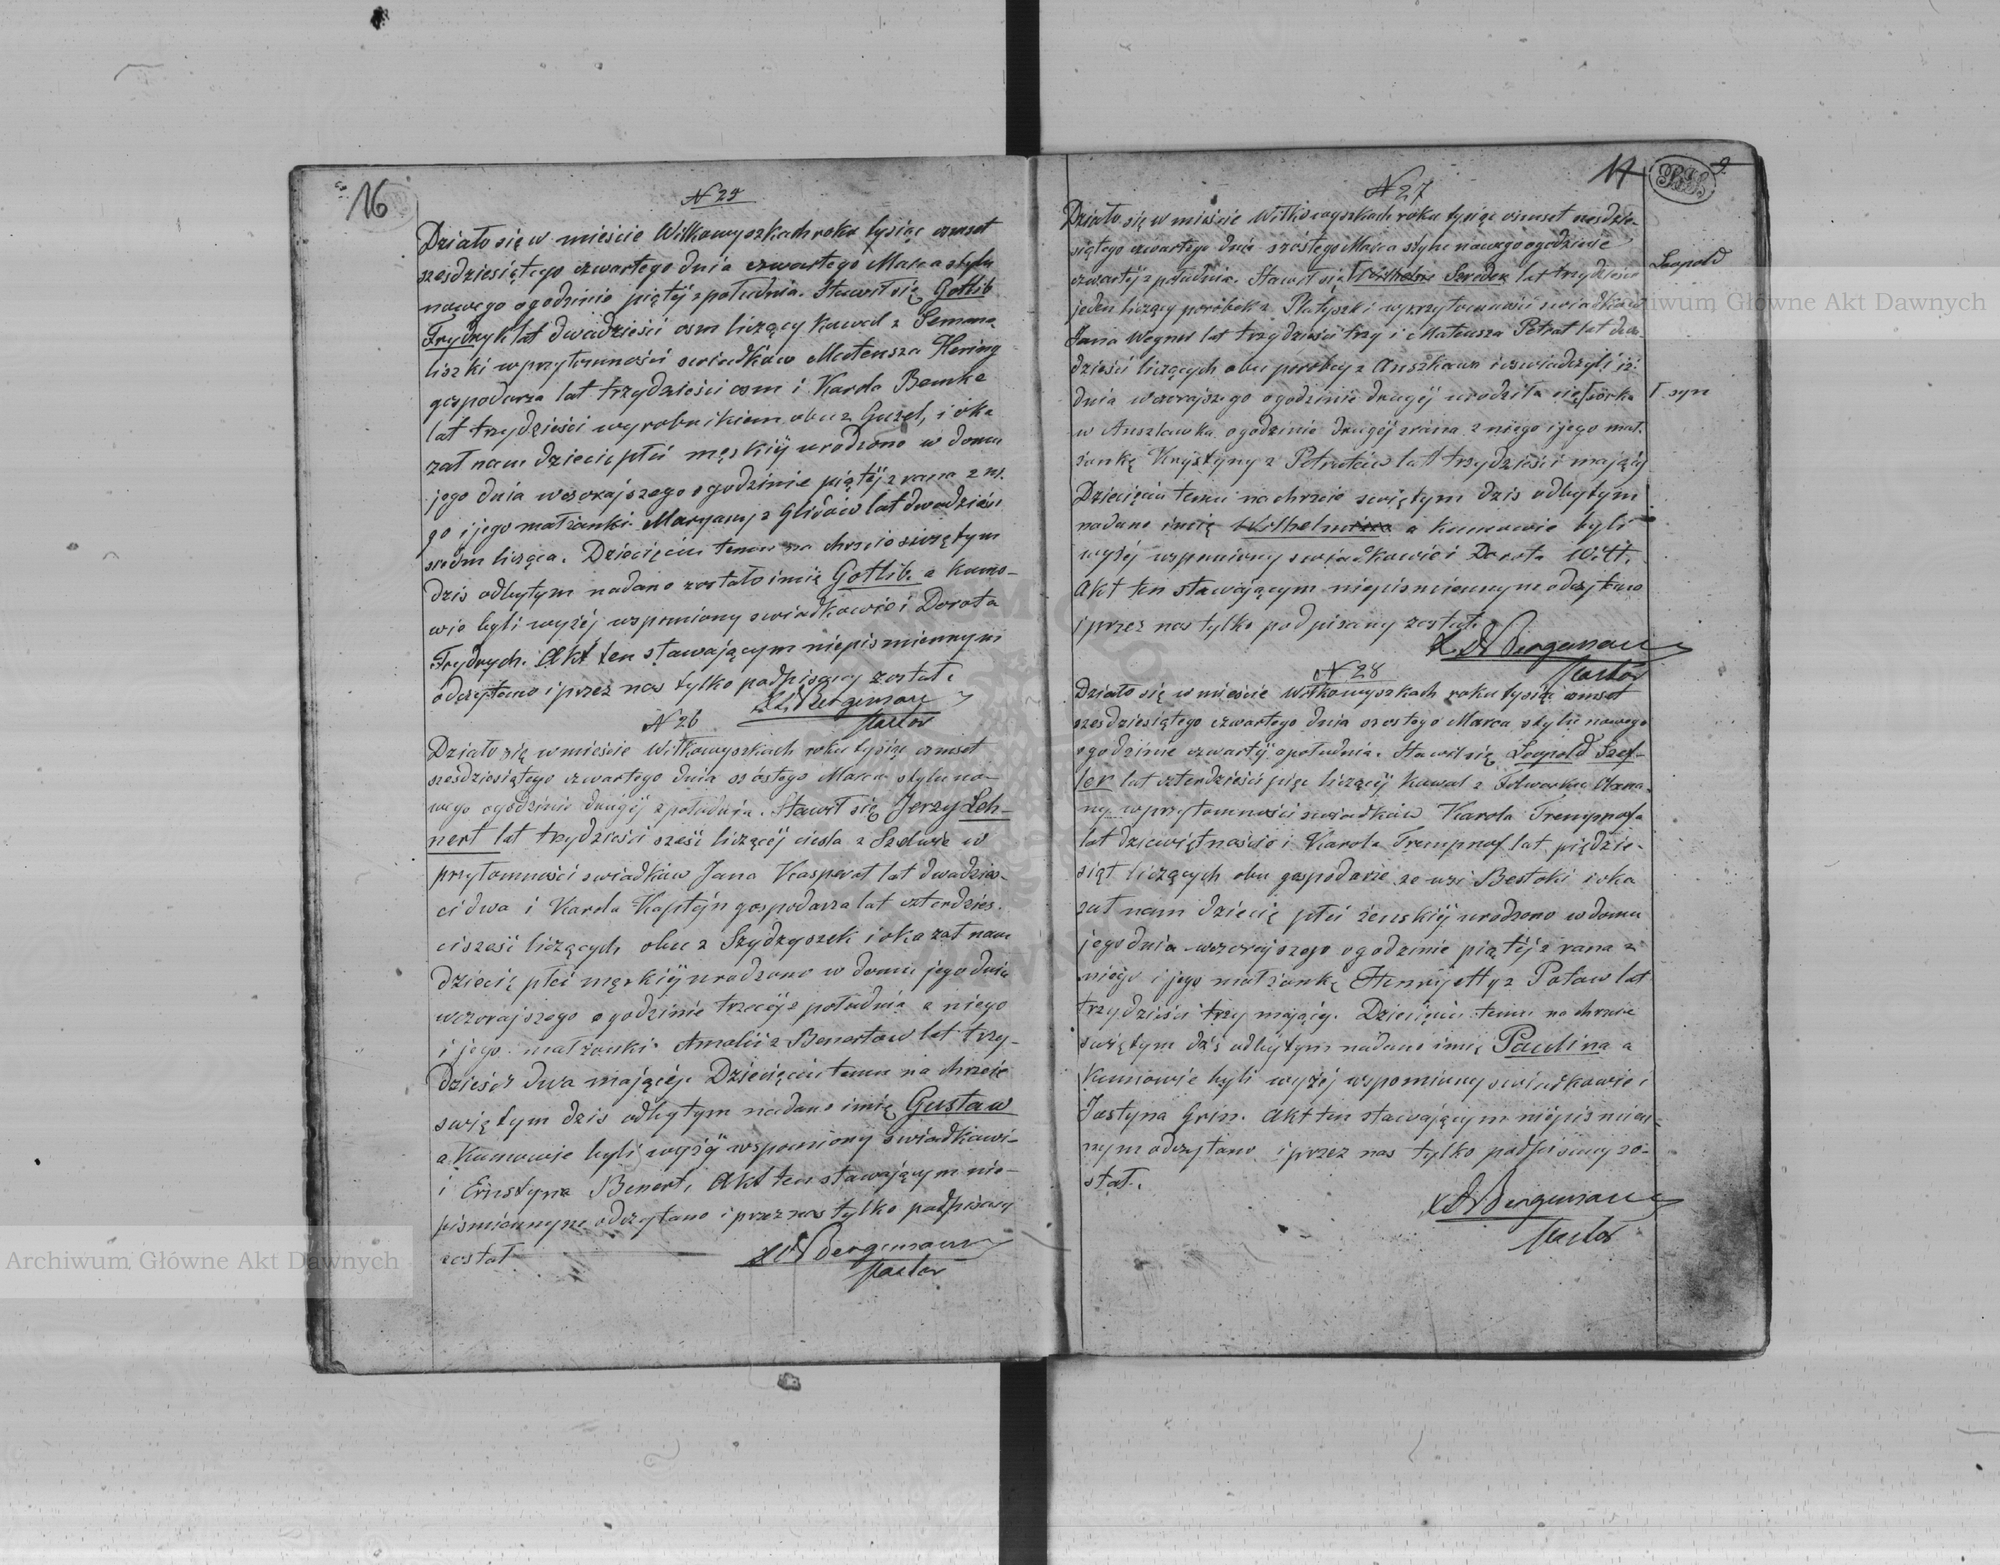 16
N 25
Działo się w mieście Wilkowyszkach roku tysiąc osmset
szesdziesiątego czwartego dnia czwartego Marca stylu
nowego ogodzinie piątéj zpołudnia. Stawił się Gotlib
Frydryk lat dwadzieści osm liczący kowal z Semene
liszki wprzytomności swiadków Mateusza Hering
gospodarza lat trzydzieści osm i Karola Bemke
lat trzydzieści wyrobnikiem obu z Guzel, i oka
zał nam dziecie płci męskiéj urodzone w domu
jego dnia wczorajszego ogodzinie piątéj zrana z ni.
go i jego małżonki Maryany z Glidów lat dwadzieści
siedm licząca. Dziecięciu temu na chrzcie swiętym
dzis odbytym nadano zostało imię Gotlib. a kumo-
wie byli wyżéj wspomiony swiadkowie i Dorota
Frydrych. Akt ten stawającym niepismiennym
odczytano i przez nas tylko podpisany został.
X A Bergemann
Pastor
N 26
Działo się w mieście Wilkowyszkach roku tysiąc osmset
szesdziesiątego czwartego dnia szóstego Marca stylu no-
wego ogodzinie drugiéj zpołudnia. Stawił się Jerzy Leh-
nert lat trzydzieści sześć liczącéj ciesla z w
przytomności swiadków Jana Kasperat lat dwadzies-
ci dwa i Karola Kaptéjn gospodarza lat czterdzies.
ci sześć liczących obu z Szydzyszek i okazał nam
dziecię płci męskiéj urodzone w domu jego dnia
wczorajszego ogodzinie trzeciéj z południa z niego
i jego małżonki Amalii z Benertow lat trzy-
dzieści dwa mającéj. Dziecięciu temu na chrzcie
swiętym dzis odbytym nadano imię Gustaw
a Kumowie byli wyżéj wspomiony swiadkowi-
i Ernstyna Benert, Akt ten stawającym nie-
pismiennym odczytano i przez nas tylko podpisany
został.
X A Bergemann
Pastor
17
9.
N 27
Działo się w mieście Wilkowyszkach roku tysiąc osmset szesdzie-
siątego czwartego dnia szóstego Marca stylu nowego ogodzinie
czwartéj zpołudnia. Stawił się Wilhelm lat trzydzieści
Leopold
jeden liczący parobek z wprzytomności swiadków
Jana Wegner lat trzydzieści trzy i Mateusza Petrat lat dwa-
dzieści liczących obu parobcy z Anszlawa i oswiadczyli iż
dnia wczorajszego ogodzinie drugéj urodziła się córka
syn
w Anszlawka ogodzinie drugéj zrana z niego i jego mał.
żonkę Krystyny z Petratów lat trzydzieści mający
Dziecięciu temu na chrzcie swiętym dzis odbytym
nadano imię Wilhelmina a kumowie byli
wyżéj wspomiony swiadkowie i Dorota Witt.
Akt ten stawającym niepismiennym odczytano
i przez nas tylko podpisany został.
X A Bergemann
Pastor
N 28
Działo się w mieście Wilkowyszkach roku tysiąc osmset
szesdziesiątego czwartego dnia szostego Marca stylu nowego
ogodzinie czwartéj zpołudnia. Stawił się Leopold Szef-
ler lat czterdzieści pięć liczącéj kowal z Folwarku
wprzytomności swiadków Karola Trempnofa
lat dziewiętnaście i Karola Trempnof lat pięćdzie-
siąt liczących obu gospodarze ze wsi Bestoki i oka
zał nam dziecię płci żenskiéj urodzone w domu
jego dnia wczorajszego ogodzinie piątéj z rana z
niego i jego małżonkę Henryetty z Potaw lat
trzydzieści trzy mający. Dziecięciu temu na chrzcie
swiętym dzis odbytym nadano imię Paulina a
Kumowie byli wyżéj wspomiony swiadkowie i
Justyna Grin. Akt ten stawającym niepismien-
nym odczytano i przez nas tylko podpisany zo-
stał.
X A Bergemann
Pastor
Archiwum Główne Akt Dawnych
Archiwum Główne Akt Dawnych